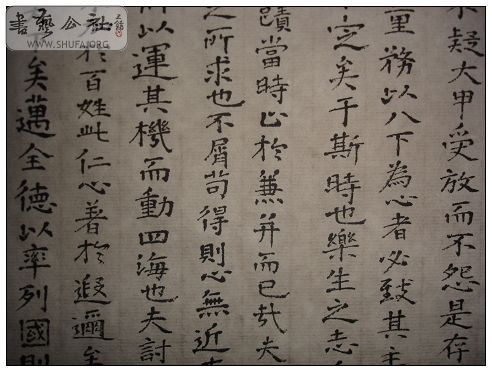 不疑大甲受放而不怨是存
務以天下為心者必致其主
定矣于斯時也樂生之志
蹟當時止於兼并而已哉夫
之所求也不屑苟得則心無近
所以運其機而動四海也夫討
於百姓此仁心著於遐邇
矣邁全德以率列國則
書藝公社
WWW.SHUFA.ORG